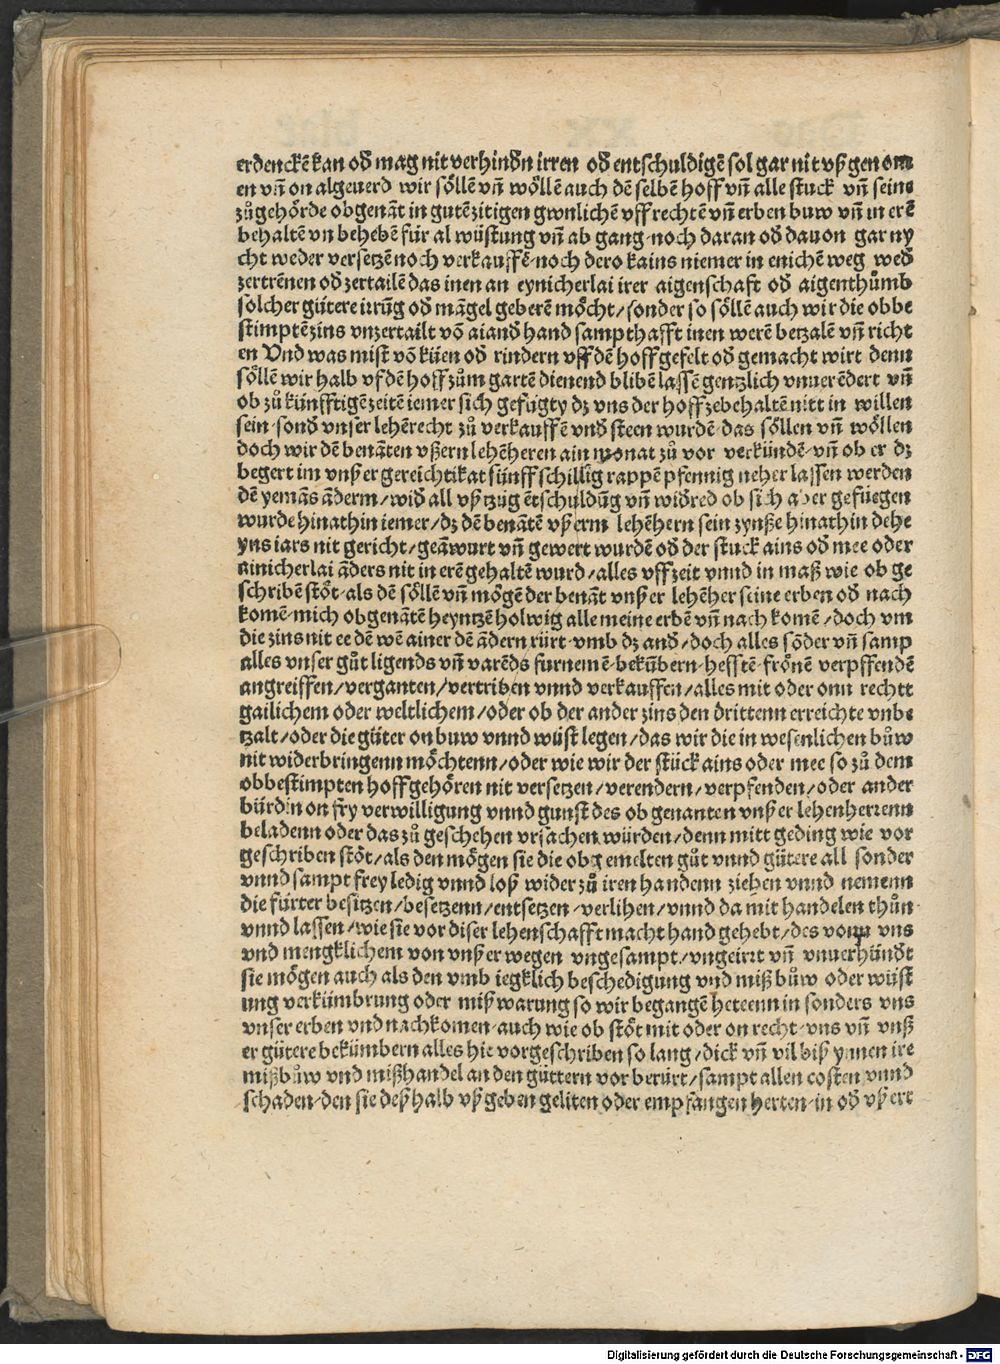 erdenckē kan od mag nit verhindn irren od entschuldigē sol gar nit vß genom
en vn̄ on algeuerd wir söllē vn̄ wöllē auch dē selbē hoff vn̄ alle stuck vn̄ seine
zůgehörde obgenāt in gutē zitigen gwnlichē vff rechtē vn̄ erben buw vn̄ in erē
behaltē vn behebē für al wüstung vn̄ ab gang noch daran od dauon gar ny
cht weder versetzē noch verkauffē noch dero kains niemer in enichē weg wed
zertrēnen od zertailē das inen an eynicherlai irer aigenschaft od aigenthůmb
solcher gütere irrūg od māgel geberē möcht/ sonder so söllē auch wir die obbe
stimptē zins vnzertailt vō aiand hand sampthafft inen werē betzalē vn̄ richt
en Vnd was mist vō küen od rindern vff dē hoff gefelt od gemacht wirt denn
söllē wir halb vf dē hoff zům gartē dienend blibē lassē gentzlich vnuerēdert vn̄
ob zů künfftigē zeitē iemer sich gefügty dz vns der hoff zebehaltē nitt in willen
sein sond vnser lehērecht zů verkauffē vnd steen wurdē das söllen vn̄ wöllen
doch wir dē benāten vßern lehēheren ain monat zů vor verkündē vn̄ ob er dz
begert im vnßer gereichtikat fünff schillig rappē pfennig neher lassen werden
dē yemās āderm/ wid all vß tzug ētschuldūg vn̄ widred ob sich aber gefüegen
wurde hinathin iemer/ dz dē benātē vßerm lehēhern sein zynße hinathin dehe
yns iars nit gericht/ geāwurt vn̄ gewert wurdē od der stuck ains od mee oder
ainicherlai āders nit in erē gehaltē wurd/ alles vffzeit vnnd in maß wie ob ge
schribē stöt als dē söllē vn̄ mögē der benāt vnßer lehēher seine erben od nach
komē mich obgenātē heyntzē holwig alle meine erbē vn̄ nach komē/ doch vm
die zins nit ee dē wē ainer dē ādern rürt vmb dz and/ doch alles sōder vn̄ samp
alles vnser gůt ligends vn̄ varēds furnemē bekūbern hefftē frönē verpffendē
angreiffen/ verganten/ vertriben vnnd verkauffen/ alles mit oder onn rechtt
gailichem oder weltlichem/ oder ob der ander zins den drittenn erreichte vnbe
tzalt/ oder die güter on buw vnnd wüst legen/ das wir die in wesenlichen bůw
nit widerbringenn möchtenn/ oder wie wir der stück ains oder mee so zů dem
obbestimpten hoff gehören nit versetzen/ verendern/ verpfenden/ oder ander
bürdin on fry verwilligung vnnd gunst des ob genanten vnßer lehenherrenn
beladenn oder das zů geschehen vrsachen würden/ denn mitt geding wie vor
geschriben stöt/ als den mögen sie die obgemelten gůt vnnd gütere all sonder
vnnd sampt frey ledig vnnd loß wider zů iren handenn ziehen vnnd nemenn
die fürter besitzen/ besetzenn/ entsetzen verlihen/ vnnd da mit handelen thůn
vnnd lassen/ wie sie vor diser lehenschafft macht hand gehebt/ des vonn vns
vnd mengklichem von vnßer wegen vngesampt/ vngeirrt vn̄ vnuerhündt
sie mögen auch als den vmb iegklich beschedigung vnd mißbůw oder wüst
ung verkümbrung oder miß warung so wir begangē hetenn in sonders vns
vnser erben vnd nachkomen auch wie ob stöt mit oder on recht vns vn̄ vnß
er gütere bekümbern alles hie vorgeschriben so lang/ dick vn̄ vil biß ynnen ire
mißbůw vnd mißhandel an den güttern vor berürt/ sampt allen costen vnnd
schaden den sie deßhalb vß geben geliten oder empfangen hetten in od vßert
Digitalisierung gefördert durch die Deutsche Forschungsgemeinschaft - DFG